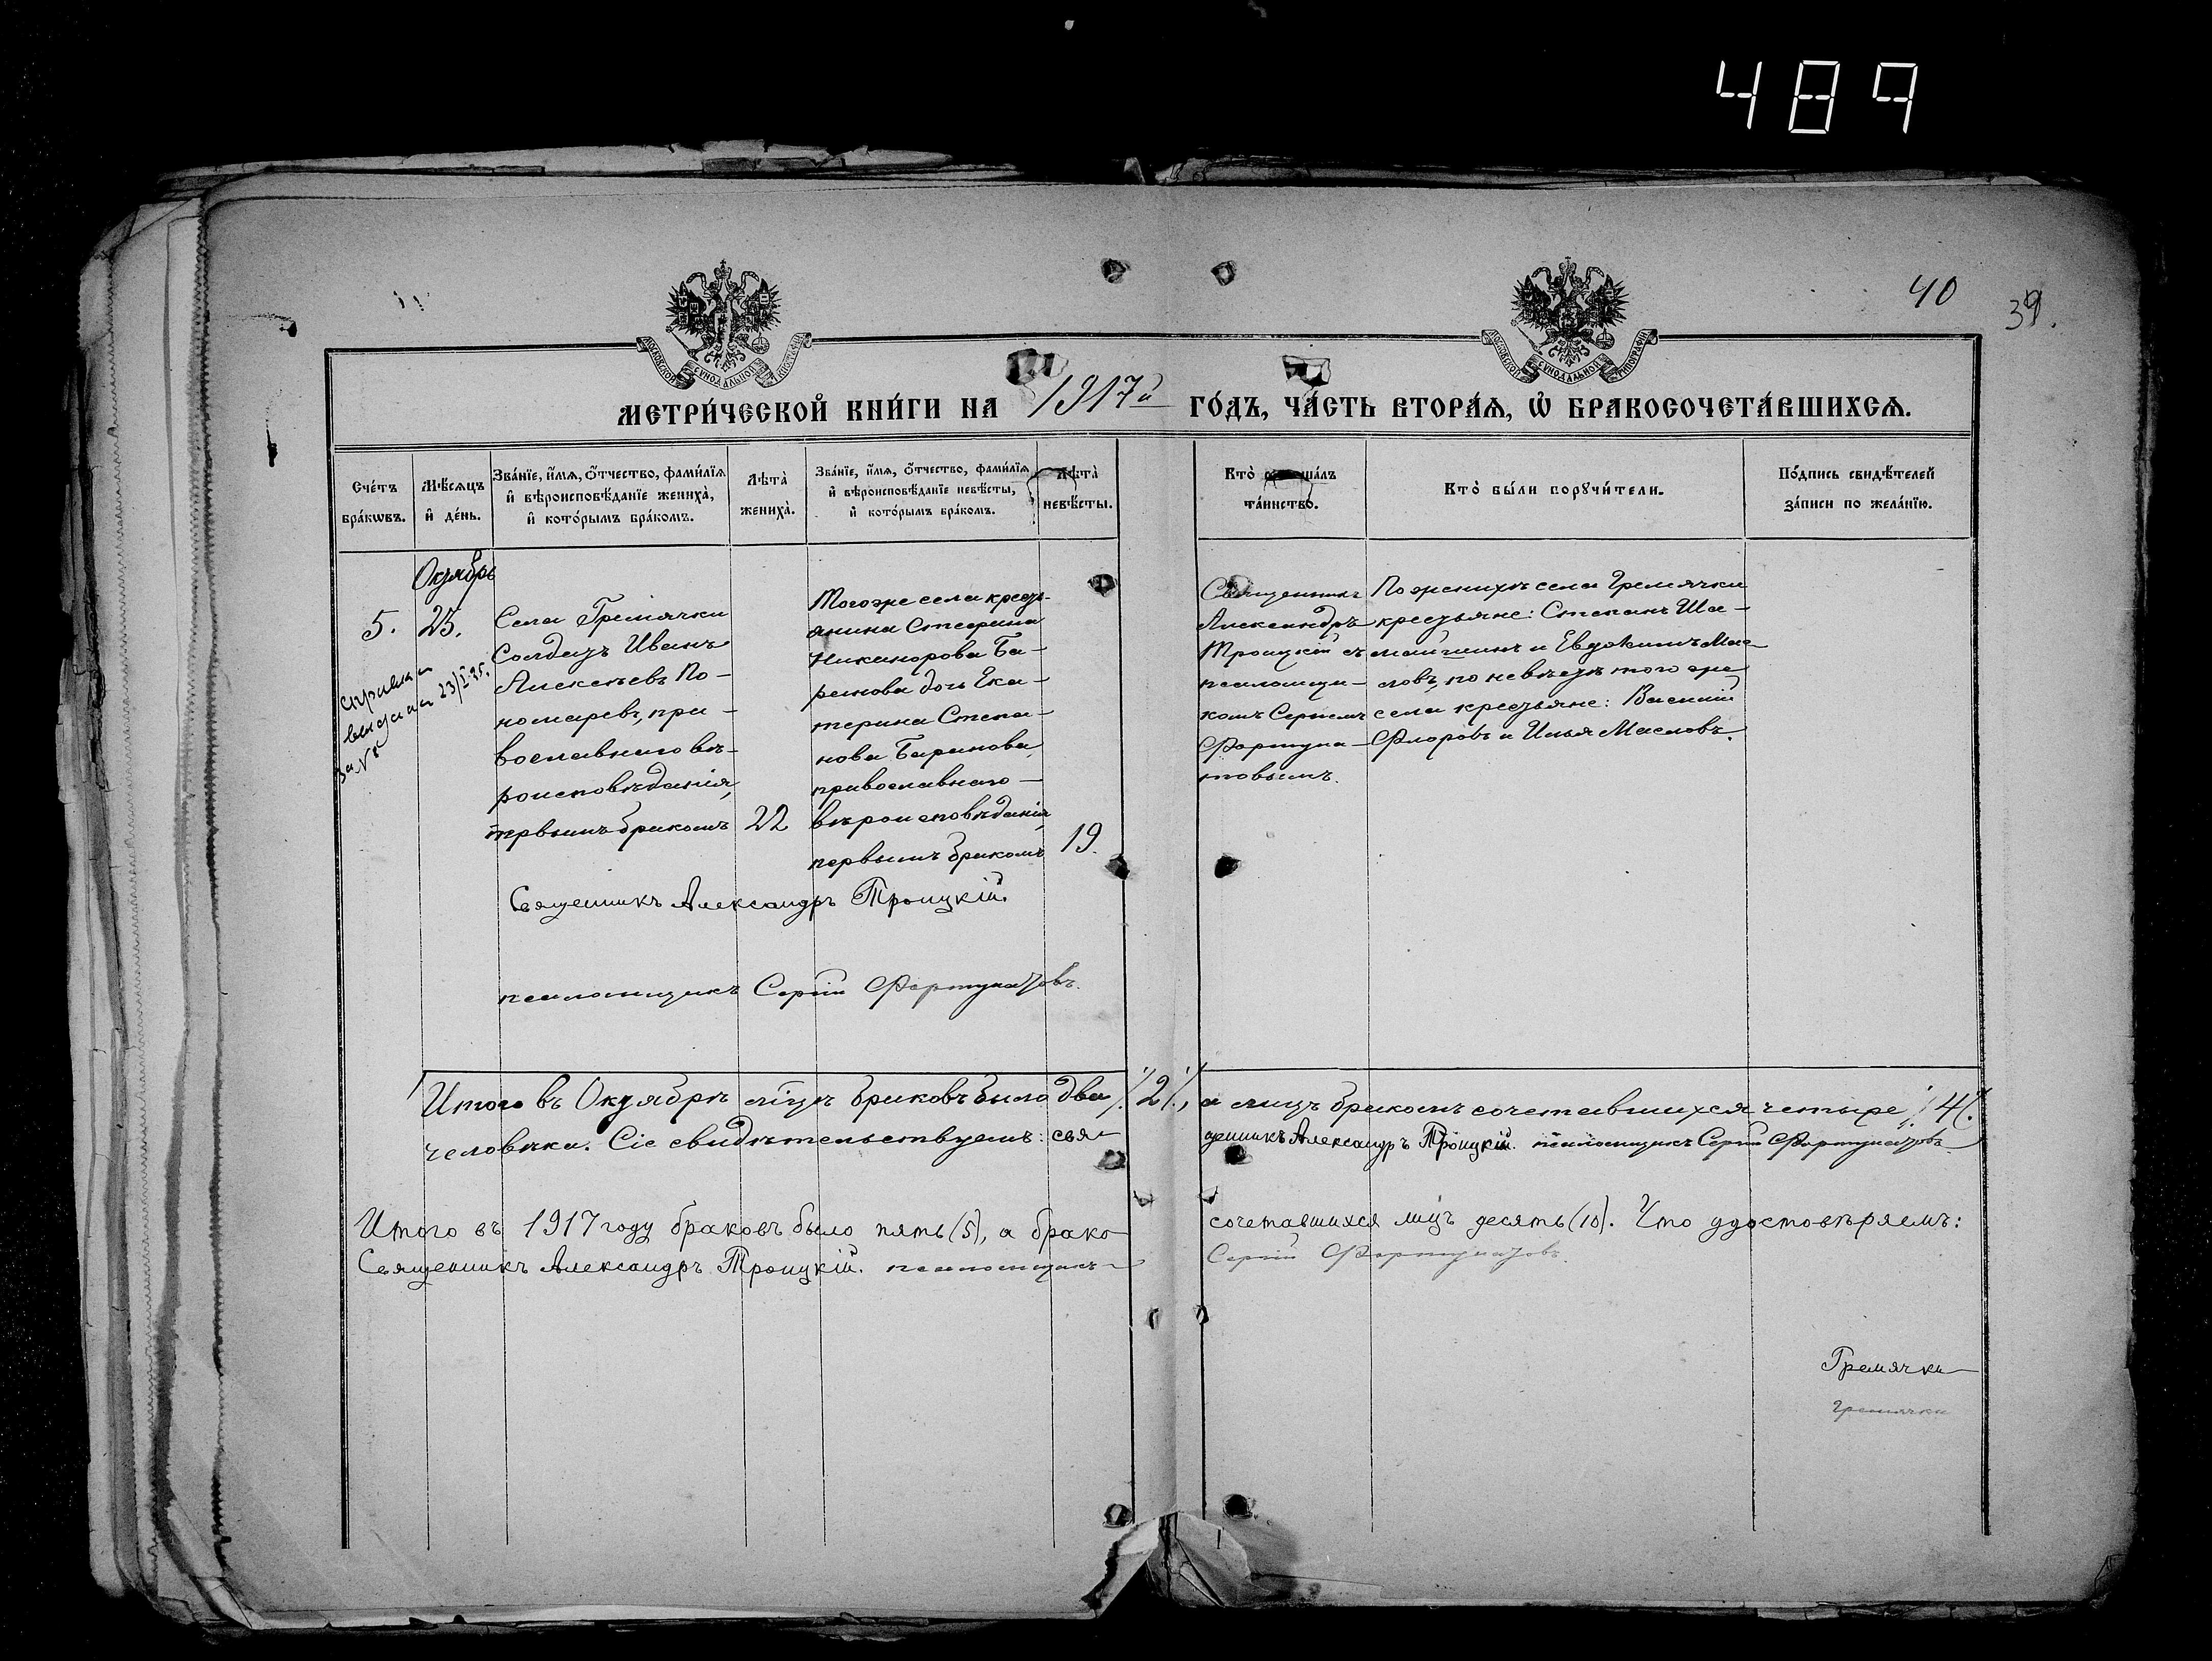 489
40
39.
МОСКОВСКОЙ СѴНОДАЛЬНОЙ ТИПОГРАФІИ
МОСКОВСКОЙ СѴНОДАЛЬНОЙ ТИПОГРАФІИ
МЕТРИ́ЧЕСКОЙ КНИ́ГИ НА 1917й ГО́ДЪ, ЧА́СТЬ ВТОРА́Ѧ, Ѡ҆ БРАКОСОЧЕТА́ВШИХСѦ.
Сче́тъ
бра́кѡвъ.
Мѣ́сѧцъ
и҆ де́нь.
Зва́нїе, и҆́мѧ, ѻ҆́тчество, фами́лїѧ
и҆ вѣроисповѣ́данїе жениха̀,
и҆ кото́рымъ бра́комъ.
Лѣта̀
жениха̀.
Зва́нїе, и҆́мѧ, ѻ҆́тчество, фами́лїѧ
и҆ вѣроисповѣ́данїе невѣ́сты,
и҆ кото́рымъ бра́комъ.
Лѣта̀
невѣ́сты.
Кто̀
та́инство.
Кто̀ бы́ли порꙋчи́тели.
По́дпись свидѣ́телей
за́писи по жела́нїю.
Октябрь
5.
25.
Села Гремячки
Солдатъ Иванъ
Алексѣевъ По-
номаревъ, пра-
вославнаго вѣ-
роисповѣданія,
первымъ бракомъ
22
Тогоже села кресть-
янина Стефана
Никанорова Ба-
ранова дочь Ека-
терина Степа-
нова Баранова,
православнаго
вѣроисповѣданія,
первымъ бракомъ
19.
Священникъ
Александръ
Троицкій съ
псаломщи-
комъ Сергіемъ
Фортуна-
товымъ.
По женихѣ села Гремячки
крестьяне: Степанъ Ша-
и Евдокимъ Мас-
ловъ, по невѣстѣ того же
села крестьяне: Василій
Флоровъ и Илья Масловъ.
Справка
выдана 23/I 25.
за №
Священникъ Александръ Троицкій.
псаломщикъ Сергій Фортунатовъ.
Итого въ Октябрѣ м-цѣ браковъ было два /:2:/, а лицъ бракомъ сочетавшихся четыре /:4:/.
человѣка. Сіе свидѣтельствуемъ: свя-
щенникъ Александръ Троицкій. псаломщикъ Сергій Фортунатовъ
Итого въ 1917 году браковъ было пять (5), а брако-
сочетавшихся лицъ десять (10). Что удостовѣряемъ:
Священникъ Александръ Троицкій. псаломщикъ
Сергій Фортунатовъ.
Гремячки
Гремячки